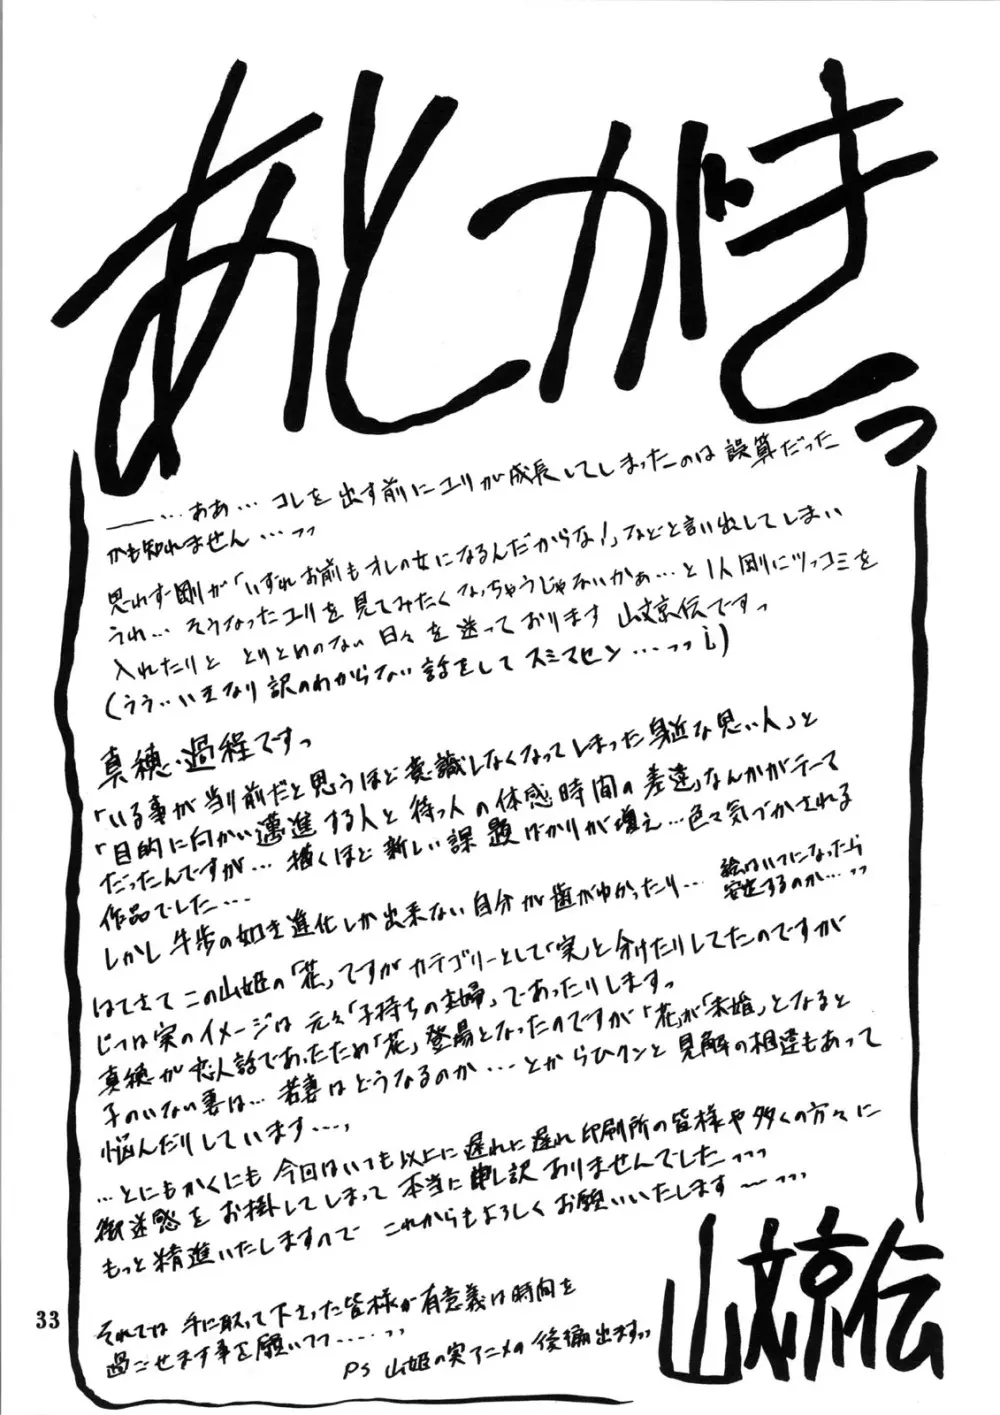 あとがきっ
――…ああ… コレを出す前にユリが成長してしまったのは誤算だった
かも知れません…っっ
思わず剛が「いずれお前もオレの女になるんだからな!」などと言い出してしまい
うれ… そうなったユリを見てみたくなっちゃうじゃないかぁ…と1人剛にツッコミを
入れたりと とりとめのない日々を送っております 山文京伝ですっ
(うう‥いきなり訳のわからない話をしてスミマセン…っっ)
真穂・過程ですっ
「いる事が当り前だと思うほど意識しなくなってしまった身近な思い人」と
「目的に向かい邁進する人と待つ人の体感時間の差違」なんかがテーマ
だったんですが… 描くほど新しい課題ばかりが増え…色々気づかされる
作品でした…
しかし牛歩の如き進化しか出来ない自分が歯がゆかったり… 絵はいつになったら
安定するのか…っっ
はてさて この山姫の「花」ですがカテゴリーとして「実」と分けたりしてたのですが
じつは実のイメージは元々「子持ちの主婦」であったりしますっ
真穂が恋人話であったため「花」登場となったのですが「花」が「未婚」となると
子のいない妻は… 若妻はどうなるのか…とからひクンと見解の相違もあって
悩んだりしています…、
…とにもかくにも 今回はいつも以上に遅れに遅れ印刷所の皆様や多くの方々に
御迷惑をお掛けしてしまって本当に申し訳ありませんでしたっっっ
もっと精進いたしますので これからもよろしくお願いいたします〜っっっ
それでは 手に取って下さった皆様が有意義は時間を
過ごせます事を願いつつ……っっ
PS 山姫の実アニメの後編出ますっっ
山文京伝
33